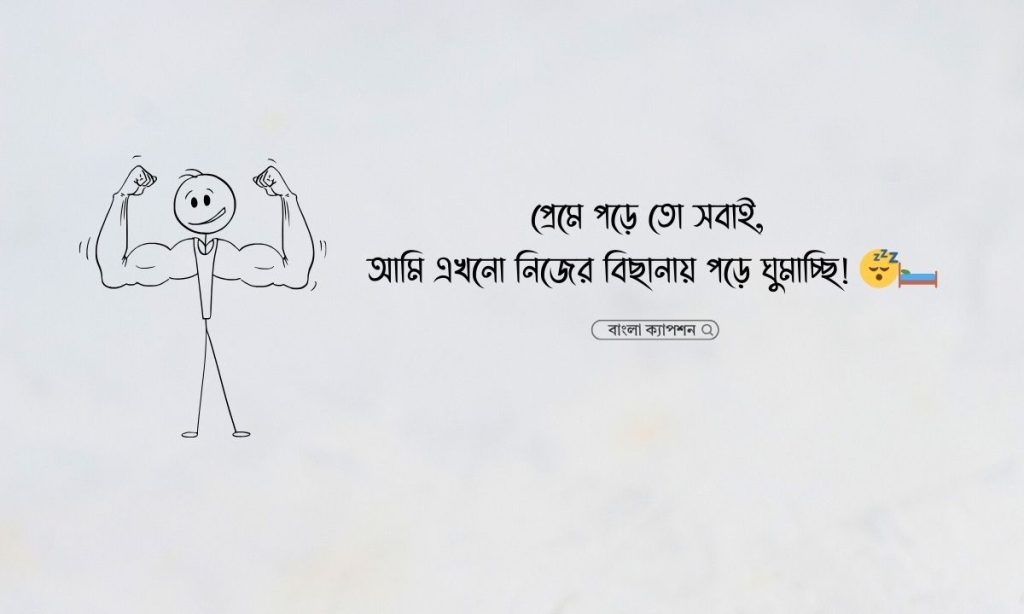 প্রেমে পড়ে তো সবাই,
আমি এখনো নিজের বিছানায় পড়ে ঘুমাচ্ছি! 😴🛏️
বাংলা ক্যাপশন